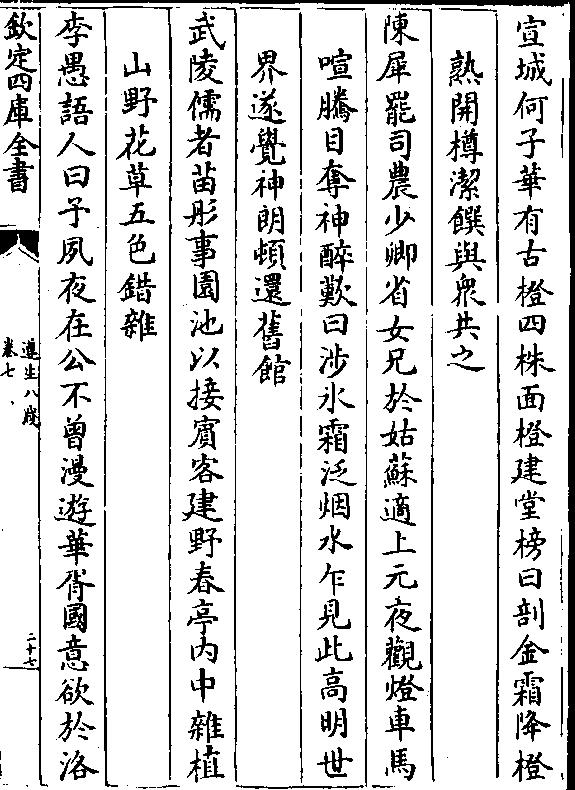 宣城何子華有古橙四株面橙建堂榜曰剖金霜降橙
熟開樽潔饌與衆共之
陳犀罷司農少卿省女兄於姑蘇適上元夜觀燈車馬
喧騰目奪神醉歎曰涉氷霜泛烟水乍見此高明世
界遂覺神朗頓還舊館
武陵儒者苗彤事園池以接賓客建野春亭内中雜植
山野花草五色錯雜
李愚語人曰予夙夜在公不曾漫遊華胥國意欲於洛
欽定四庫全書
遵生八牋
卷七
二十七